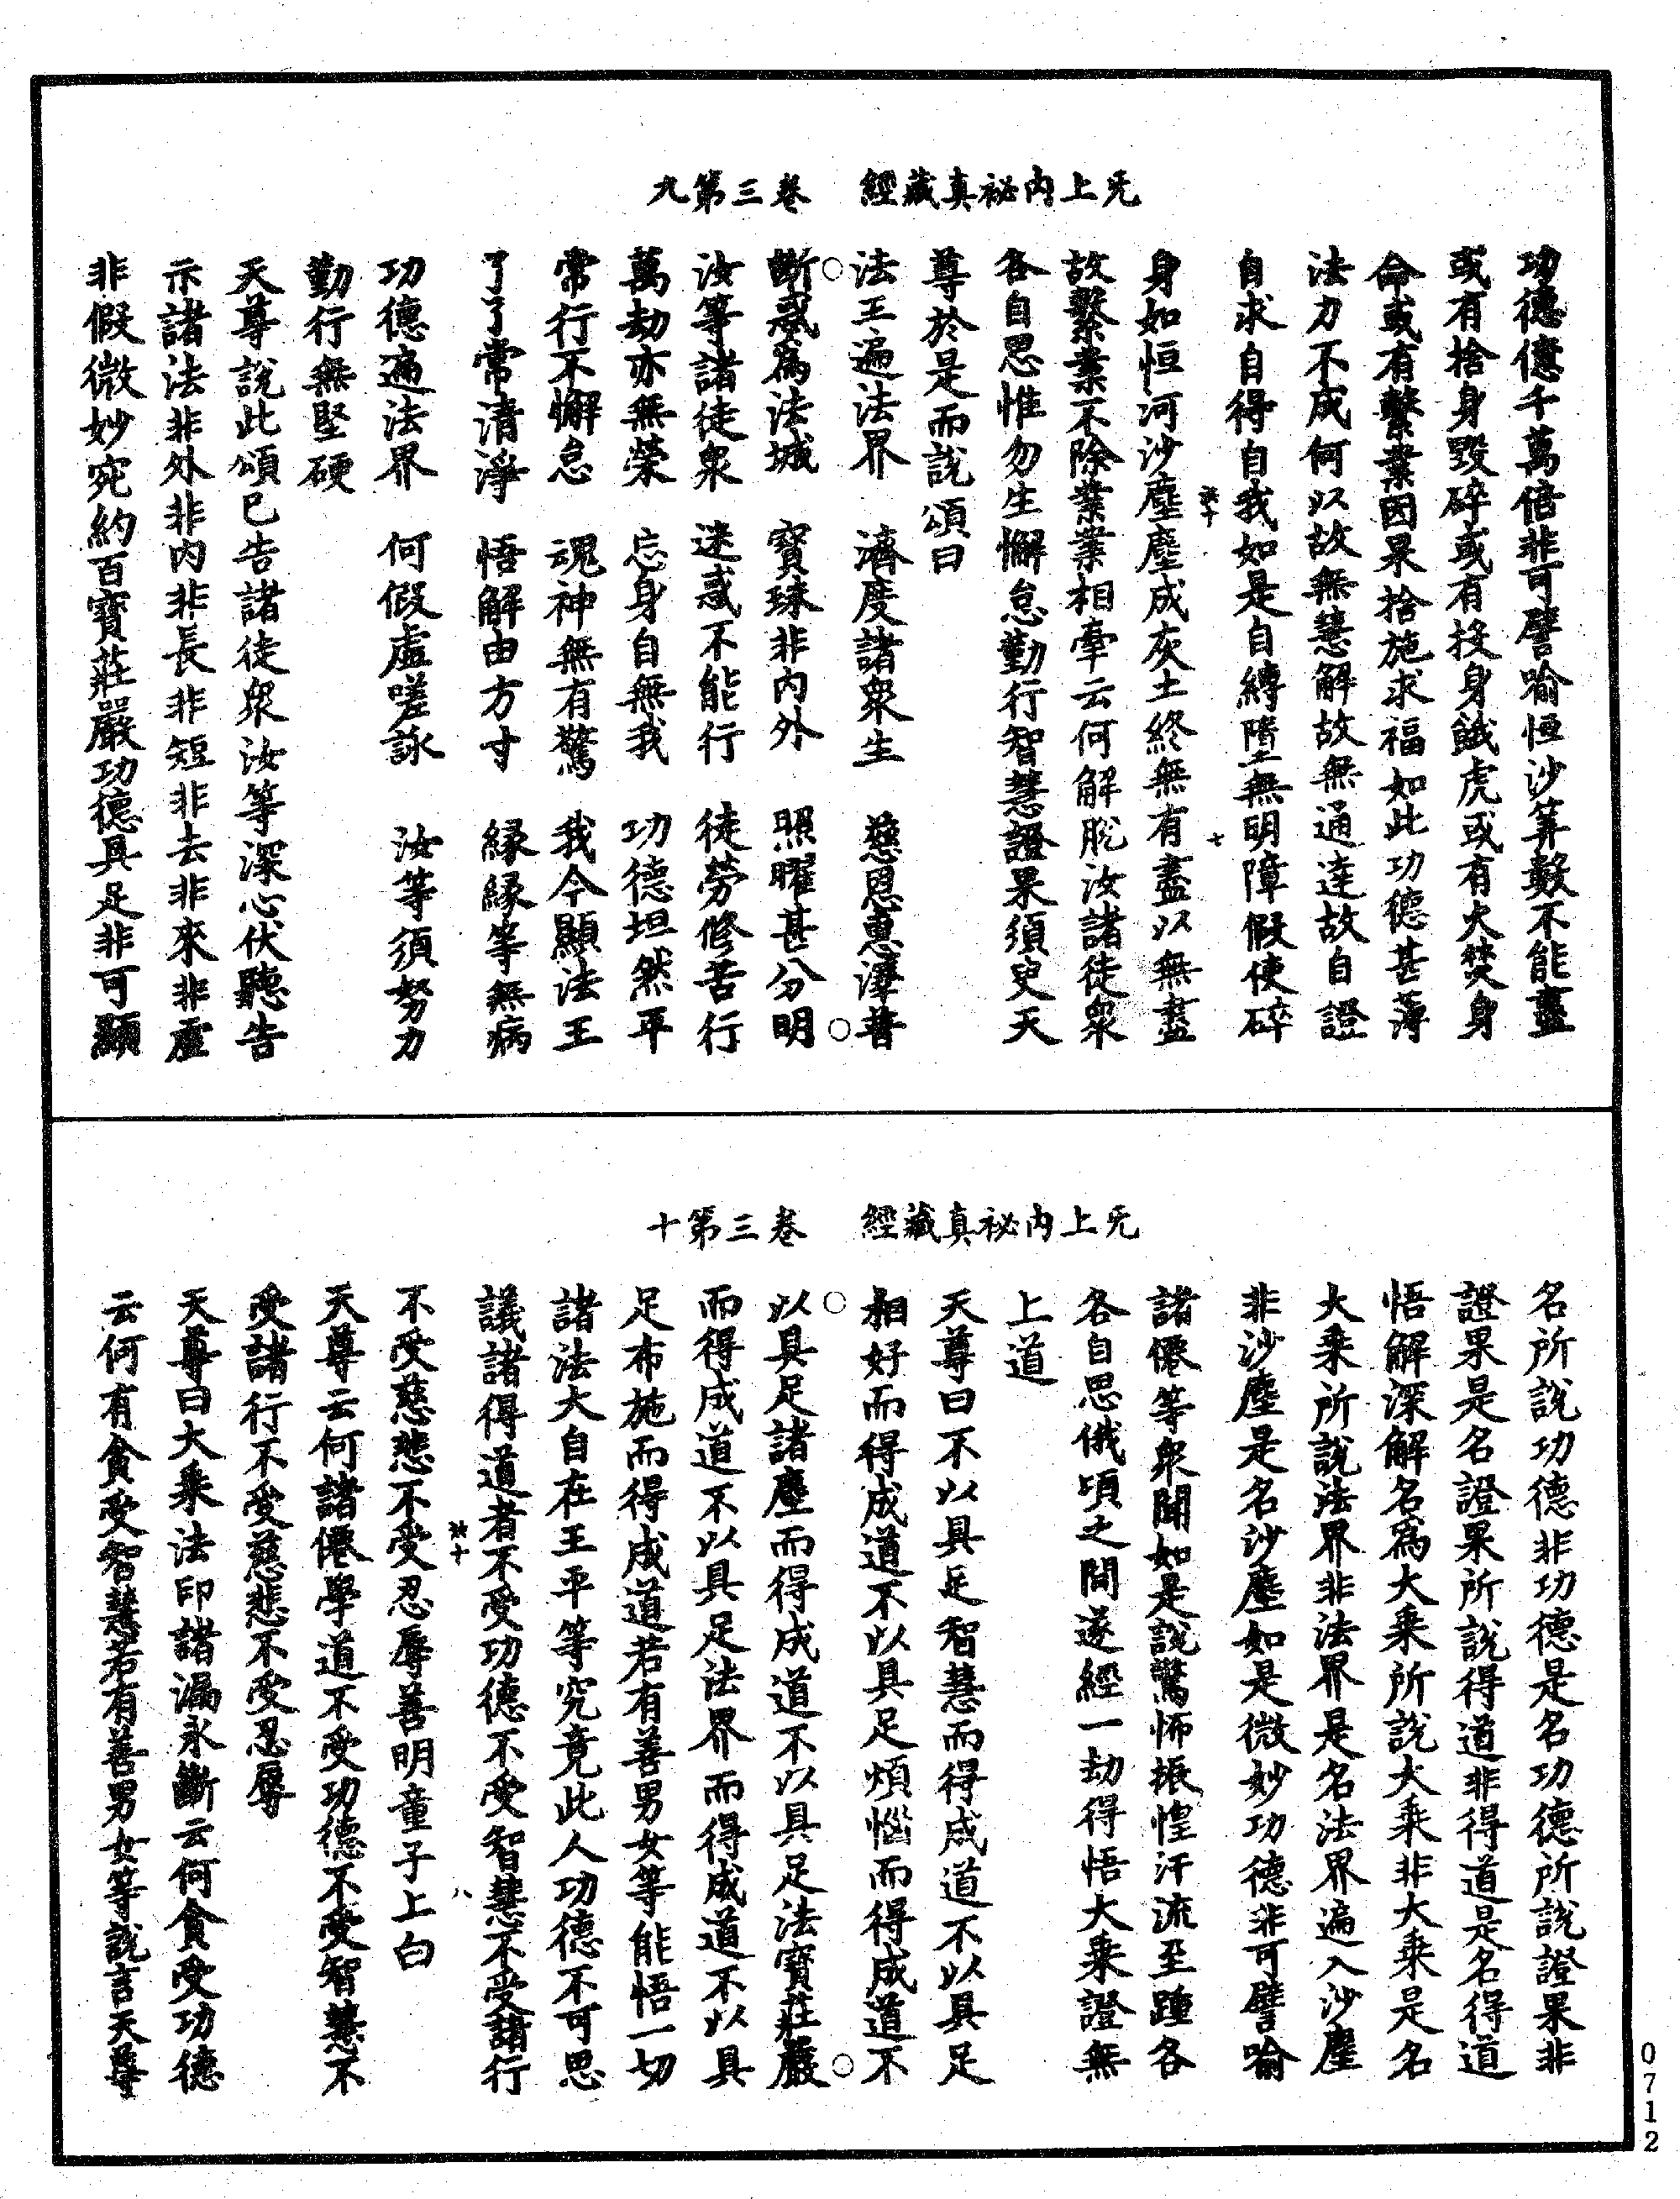 无上内祕真藏經 卷三第九
功德億千萬倍非可譬喻恒沙筭數不能盡
或有捨身毀碎或有投身餓虎或有火焚身
命或有繫業因果捨施求福如此功德甚薄
法力不成何以故無慧解故無通達故自證
自求自得自我如是自縛墮無明障假使碎
身如恒河沙塵塵成灰土終無有盡以無盡
故繫業不除業業相牽云何解脫汝諸徒衆
各自思惟勿生懈怠勤行智慧證果須臾天
尊於是而說頌曰
法王遍法界 濟度諸衆生 慈恩惠澤普
斷惑為法城 寶珠非内外 照曜甚分明
汝等諸徒衆 迷惑不能行 徒勞修苦行
萬劫亦無榮 忘身自無我 功德坦然平
常行不懈怠 魂神無有驚 我今顯法王
了了常清淨 悟解由方寸 緣緣等無病
功德遍法界 何假虛嗟詠 汝等須努力
勤行無堅硬
天尊說此頌已告諸徒衆汝等深心伏聽告
示諸法非外非内非長非短非去非來非虛
非假微妙宛約百寶莊嚴功德具足非可顯
无上内祕真藏經 卷三第十
名所說功德非功德是名功德所說證果非
證果是名證果所說得道非得道是名得道
悟解深解名為大乘所說大乘非大乘是名
大乘所說法界非法界是名法界遍入沙塵
非沙塵是名沙塵如是微妙功德非可譬喻
諸僊等衆聞如是說驚怖振惶汗流至踵各
各自思俄頃之間遂經一劫得悟大乘證無
上道
天尊曰不以具足智慧而得成道不以具足
相好而得成道不以具足煩惱而得成道不
以具足諸塵而得成道不以具足法寶莊嚴
而得成道不以具足法界而得成道不以具
足布施而得成道若有善男女等能悟一切
諸法大自在王平等究竟此人功德不可思
議諸得道者不受功德不受智慧不受諸行
不受慈悲不受忍辱善明童子上白
天尊云何諸僊學道不受功德不受智慧不
受諸行不受慈悲不受忍辱
天尊曰大乘法印諸漏永斷云何貪受功德
云何有貪受智慧若有善男女等說言天尊
0712